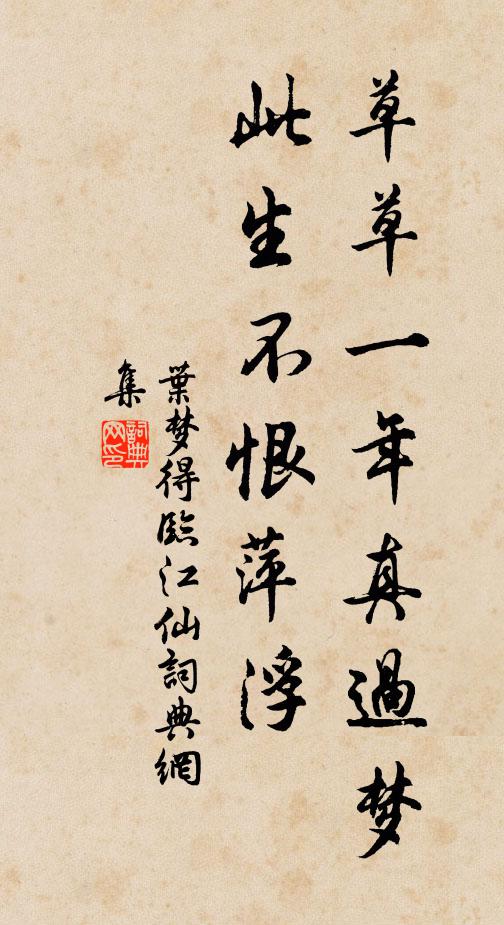 草草一年真過梦
此生不恨萍浮
葉梦得臨江仙詞典網
集
詞典網印